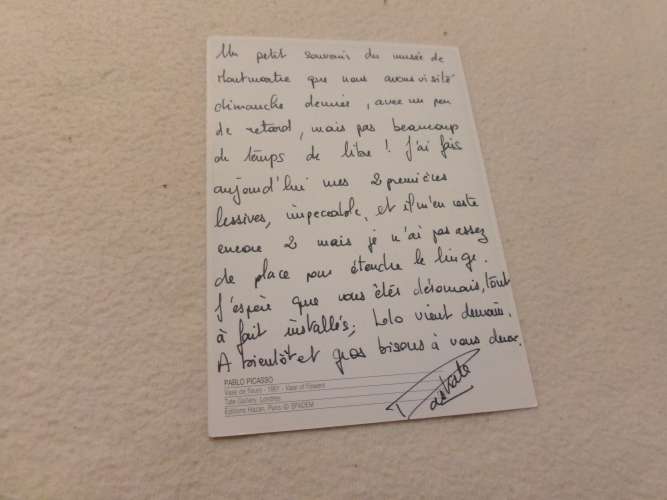 Un petit souvenir du musée de
Montmartre que nous avons visité
dimanche dernier, avec un peu
de retard, mais pas beaucoup
de temps de libre ! J'ai fais
aujourd'hui mes 2 premières
lessives, impeccable, et il m'en reste
encore 2 mais je n'ai pas assez
de place pour étendre le linge.
J'espère que vous êtes désormais, tout
à fait installés, Lolo vient demain.
A bientôt et gros bisous à vous deux.
PABLO PICASSO
Vase de fleurs - 1901 - Vase of Flowers
Tate Gallery, Londres
Éditions Hazan, Paris © SPADEM